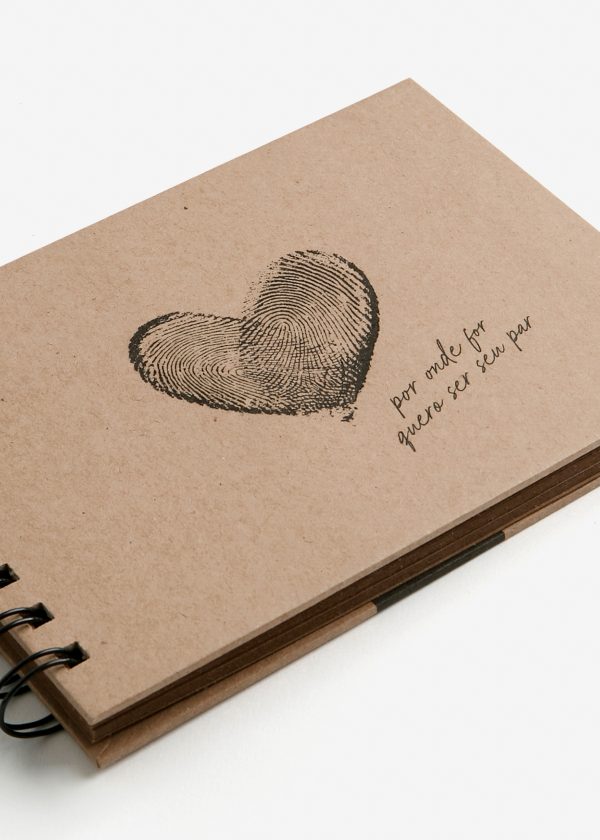 por onde for
quero ser seu par